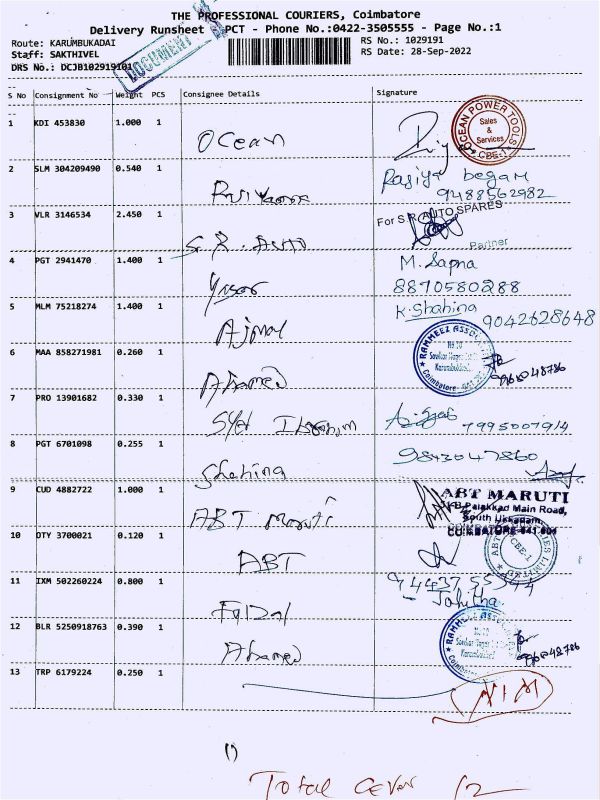 THE PROFESSIONAL COURIERS, Coimbatore
Delivery Runsheet PCT - Phone No.:0422-3505555 - Page No.:1
DOCUMENT
Route: KARUMBUKADAI
Staff: SAKTHIVEL
DRS No.: DCJB102919101
RS No.: 1029191
RS Date: 28-Sep-2022
S No Consignment No Weight PCS Consignee Details Signature
1 KDI 453830 1.000 1 Ocean
OCEAN POWER TOOLS Sales & Services CBE-1
2 SLM 304209490 0.540 1 Rasiya begam
9488562982
3 VLR 3146534 2.450 1 S.R. Auto
For S.R AUTO SPARES
Partner
4 PGT 2941470 1.400 1 M. Sapna
8870580288
5 MLM 75218274 1.400 1 Ajmal K. Shahina 9042628648
6 MAA 858271981 0.260 1 Ahamed
7 PRO 13901682 0.330 1 Syed Ibrahim 7995007914
8 PGT 6701098 0.255 1 Shahina 9843047860
9 CUD 4882722 1.000 1 ABT Maruti
ABT MARUTI
Palakkad Main Road,
South Ukkadam,
COIMBATORE-641 001
10 OTY 3700021 0.120 1 ABT
CBE-1
11 IXM 502260224 0.800 1
12 BLR 5250918763 0.390 1 Ahamed
13 TRP 6179224 0.250 1
(1)
Total Cover 12